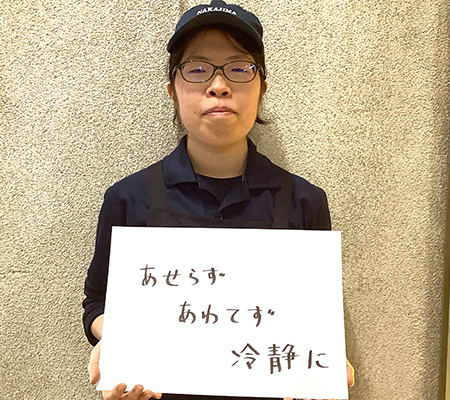 NAKAJIMA
あせらず
あわてず
冷静に